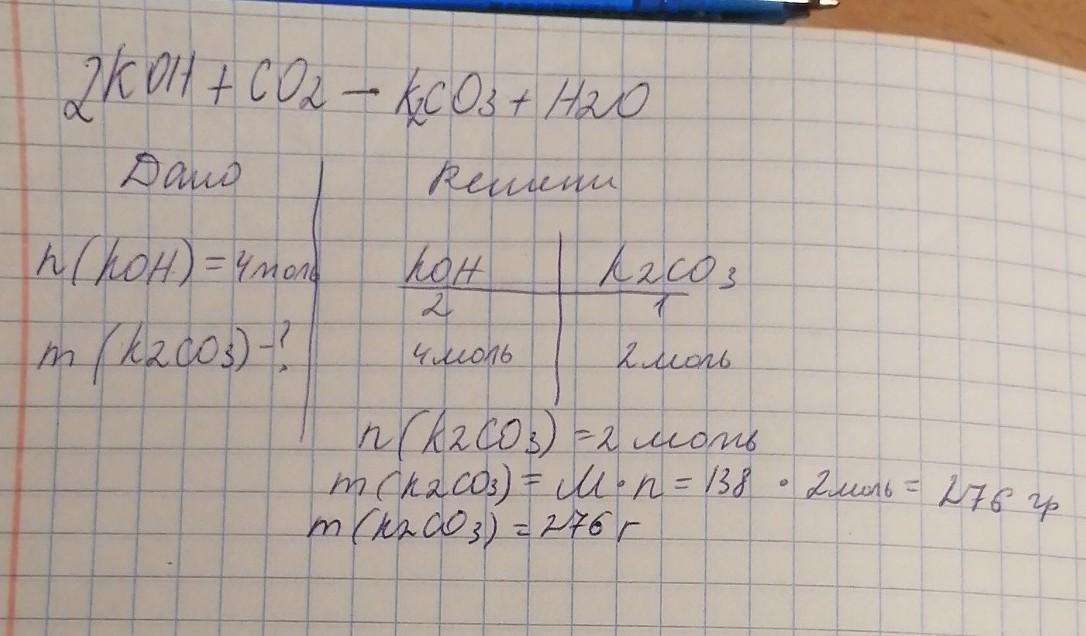 2KOH + CO2 — K2CO3 + H2O
Дано Решени
n(KOH) = 4моль KOH K2CO3
2 1
m(K2CO3) - ? 4моль 2моль
n(K2CO3) = 2 моль
m(K2CO3) = M · n = 138 · 2моль = 276 гр
m(K2CO3) = 276 г